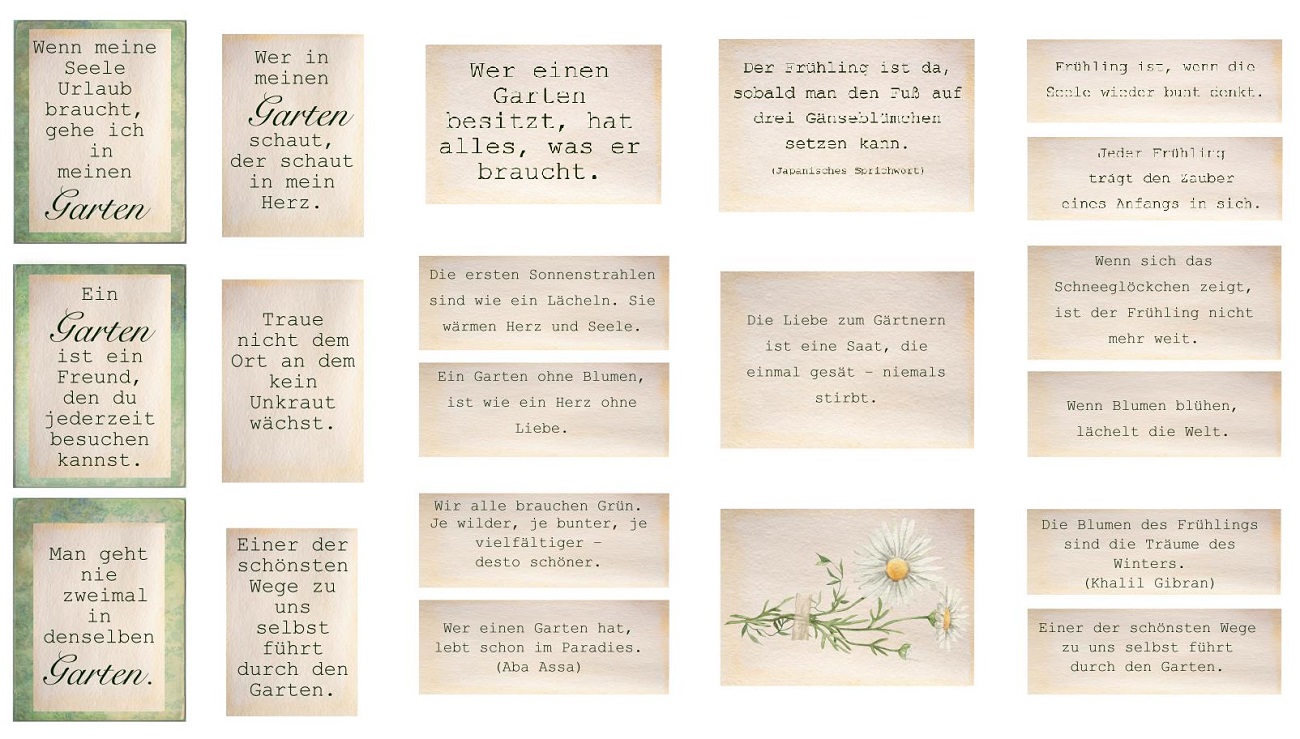 Wenn meine
Seele
Urlaub
braucht,
gehe ich
in
meinen
Garten
Wer in
meinen
Garten
schaut,
der schaut
in mein
Herz.
Wer einen
Garten
besitzt, hat
alles, was er
braucht.
Der Frühling ist da,
sobald man den Fuß auf
drei Gänseblümchen
setzen kann.
(Japanisches Sprichwort)
Frühling ist, wenn die
Seele wieder bunt denkt.
Jeder Frühling
trägt den Zauber
eines Anfangs in sich.
Ein
Garten
ist ein
Freund,
den du
jederzeit
besuchen
kannst.
Traue
nicht dem
Ort an dem
kein
Unkraut
wächst.
Die ersten Sonnenstrahlen
sind wie ein Lächeln. Sie
wärmen Herz und Seele.
Ein Garten ohne Blumen,
ist wie ein Herz ohne
Liebe.
Die Liebe zum Gärtnern
ist eine Saat, die
einmal gesät - niemals
stirbt.
Wenn sich das
Schneeglöckchen zeigt,
ist der Frühling nicht
mehr weit.
Wenn Blumen blühen,
lächelt die Welt.
Man geht
nie
zweimal
in
denselben
Garten.
Einer der
schönsten
Wege zu
uns
selbst
führt
durch den
Garten.
Wir alle brauchen Grün.
Je wilder, je bunter, je
vielfältiger -
desto schöner.
Wer einen Garten hat,
lebt schon im Paradies.
(Aba Assa)
Die Blumen des Frühlings
sind die Träume des
Winters.
(Khalil Gibran)
Einer der schönsten Wege
zu uns selbst führt
durch den Garten.